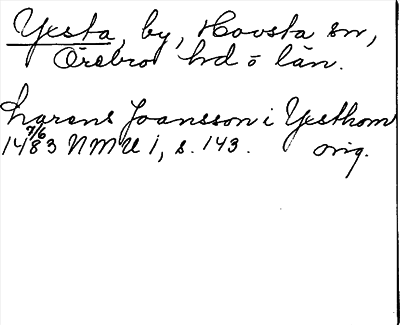 Yxsta, by, Hovsta sn,
Örebro hd o län.
Ingrens Joansson i Yesthom
7/6
1483 NMU 1, s. 143. orig.